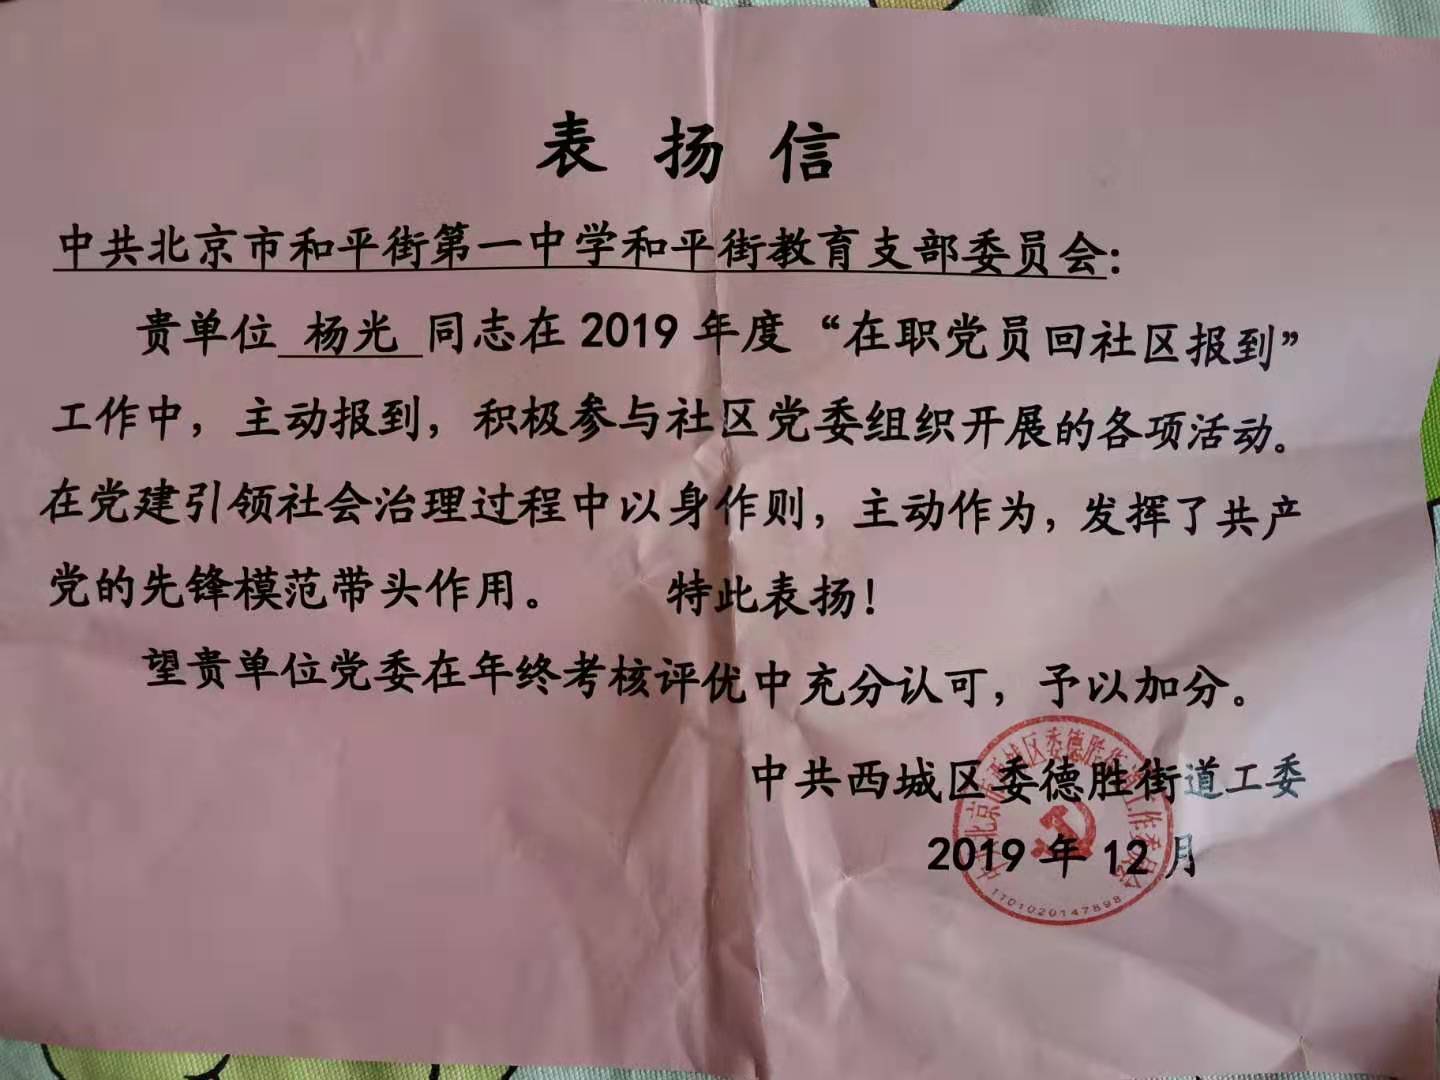 表扬信
中共北京市和平街第一中学和平街教育支部委员会:
贵单位 杨光 同志在 2019 年度 “在职党员回社区报到”
工作中，主动报到，积极参与社区党委组织开展的各项活动。
在党建引领社会治理过程中以身作则，主动作为，发挥了共产
党的先锋模范带头作用。 特此表扬！
望贵单位党委在年终考核评优中充分认可，予以加分。
中共西城区委德胜街道工委
2019 年 12 月
中共北京市西城区委德胜街道工作委员会
1101020147898